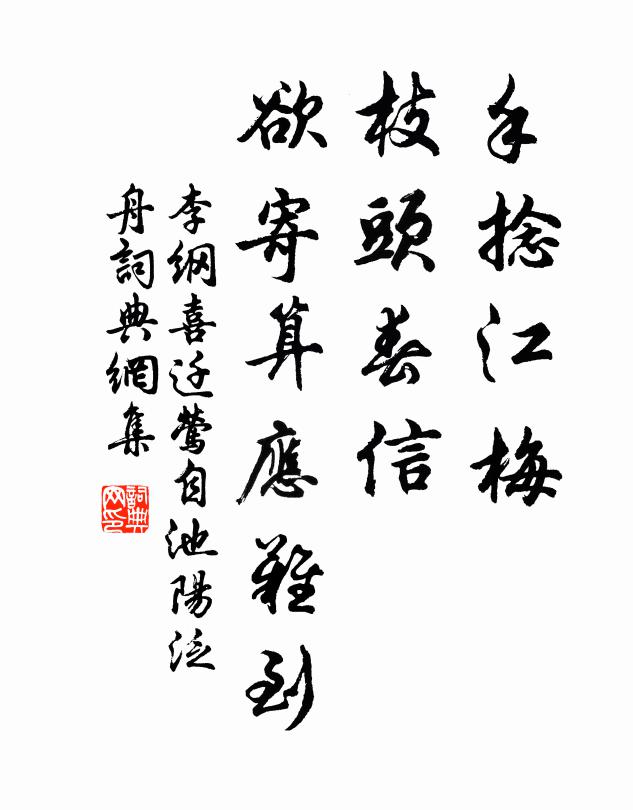 手捻江梅
枝頭春信
欲寄算應難到
李綱喜迁鶯自池陽泛
舟詞典網集
詞典网印